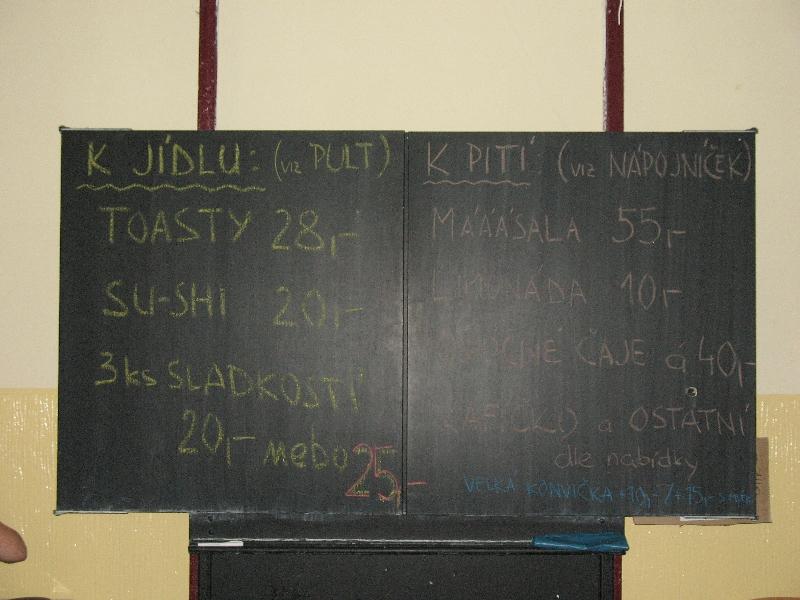 K JÍDLU: (viz PULT)
TOASTY 28,-
SU-SHI 20,-
3ks SLADKOSTÍ
20,- nebo 25,-
K PITÍ: (viz NÁPOJNÍČEK)
MÁÁÁSALA 55,-
LIMONÁDA 10,-
ČAJE á 40,-
a OSTATNÍ
dle nabídky
VELKÁ KONVIČKA